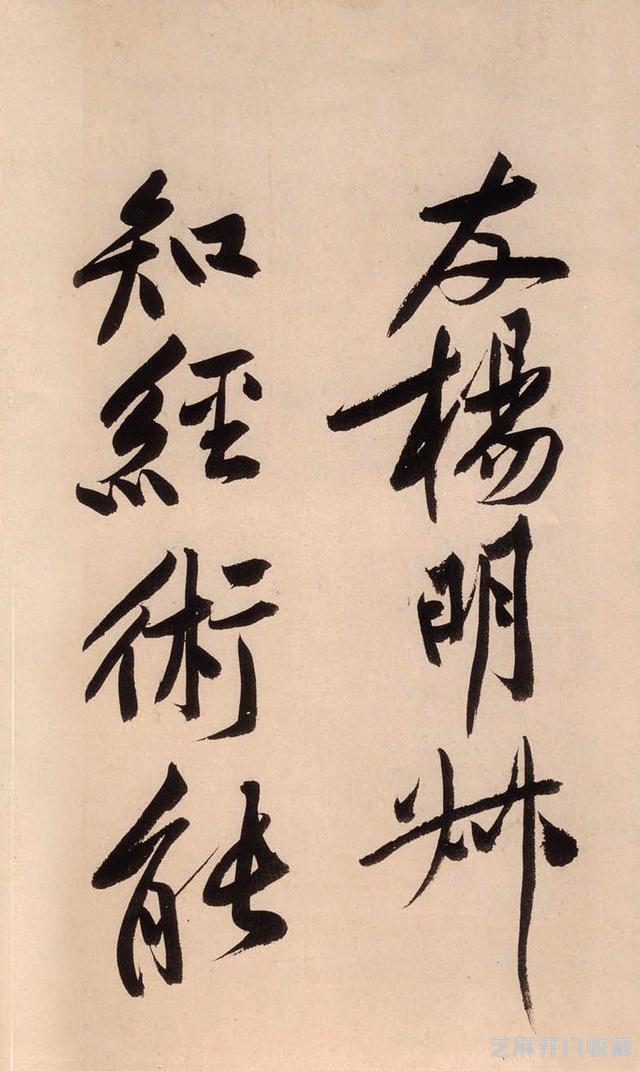 友楊明叔
知經術能
芝麻开门收藏